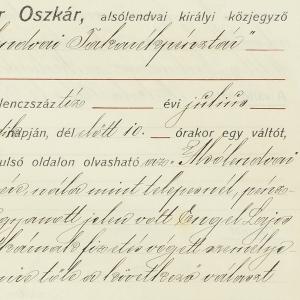 r Oszkár, alsólendvai királyi közjegyző
ndvai Takarékpénztár"
lenczszáz tíz évi julius
napján, dél előtt 10. órakor egy váltót,
ulsó oldalon olvasható az Alsólendvai
nála mint telepesnél, pénz
ugyanott jelen volt Engel Lajos
fizetés végett személye
tőle a következő választ